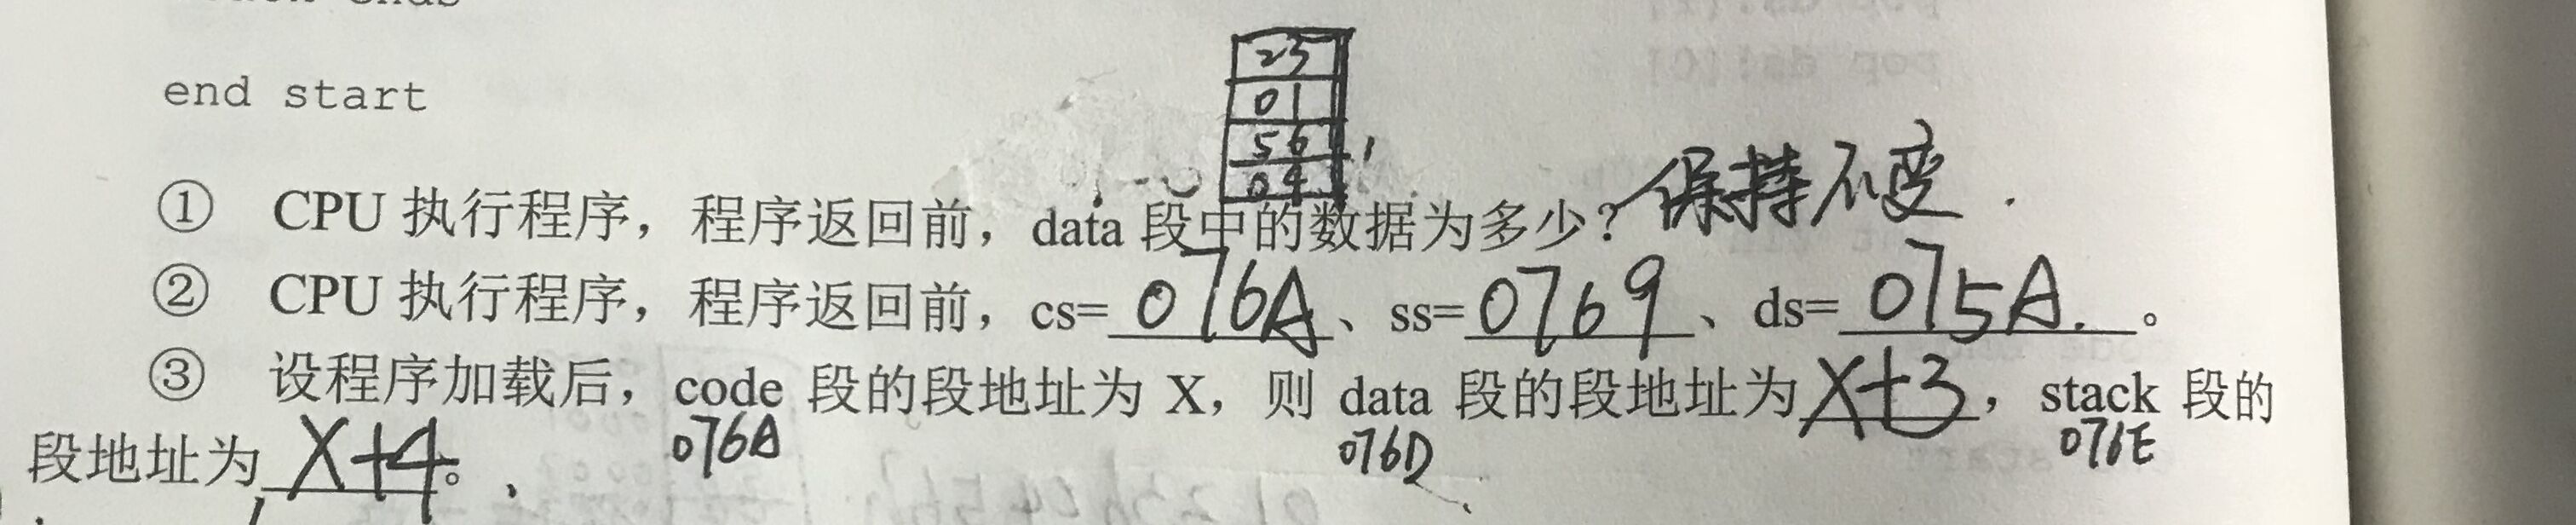 end start
23
01
56
04
① CPU 执行程序，程序返回前，data 段中的数据为多少？保持不变.
② CPU 执行程序，程序返回前，cs=076A、ss=0769、ds=075A.。
③ 设程序加载后，code 段的段地址为 X，则 data 段的段地址为X+3，stack 段的
076A 076D 076E
段地址为X+4。